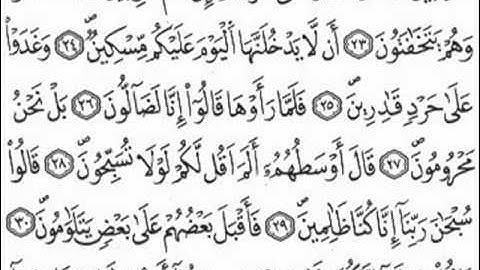 وَهُمْ يَتَخَٰفَتُونَ ۝٢٣ أَن لَّا يَدْخُلَنَّهَا ٱلْيَوْمَ عَلَيْكُم مِّسْكِينٌ ۝٢٤ وَغَدَوْا۟
عَلَىٰ حَرْدٍ قَٰدِرِينَ ۝٢٥ فَلَمَّا رَأَوْهَا قَالُوٓا۟ إِنَّا لَضَآلُّونَ ۝٢٦ بَلْ نَحْنُ
مَحْرُومُونَ ۝٢٧ قَالَ أَوْسَطُهُمْ أَلَمْ أَقُل لَّكُمْ لَوْلَا تُسَبِّحُونَ ۝٢٨ قَالُوا۟
سُبْحَٰنَ رَبِّنَآ إِنَّا كُنَّا ظَٰلِمِينَ ۝٢٩ فَأَقْبَلَ بَعْضُهُمْ عَلَىٰ بَعْضٍ يَتَلَٰوَمُونَ ۝٣٠